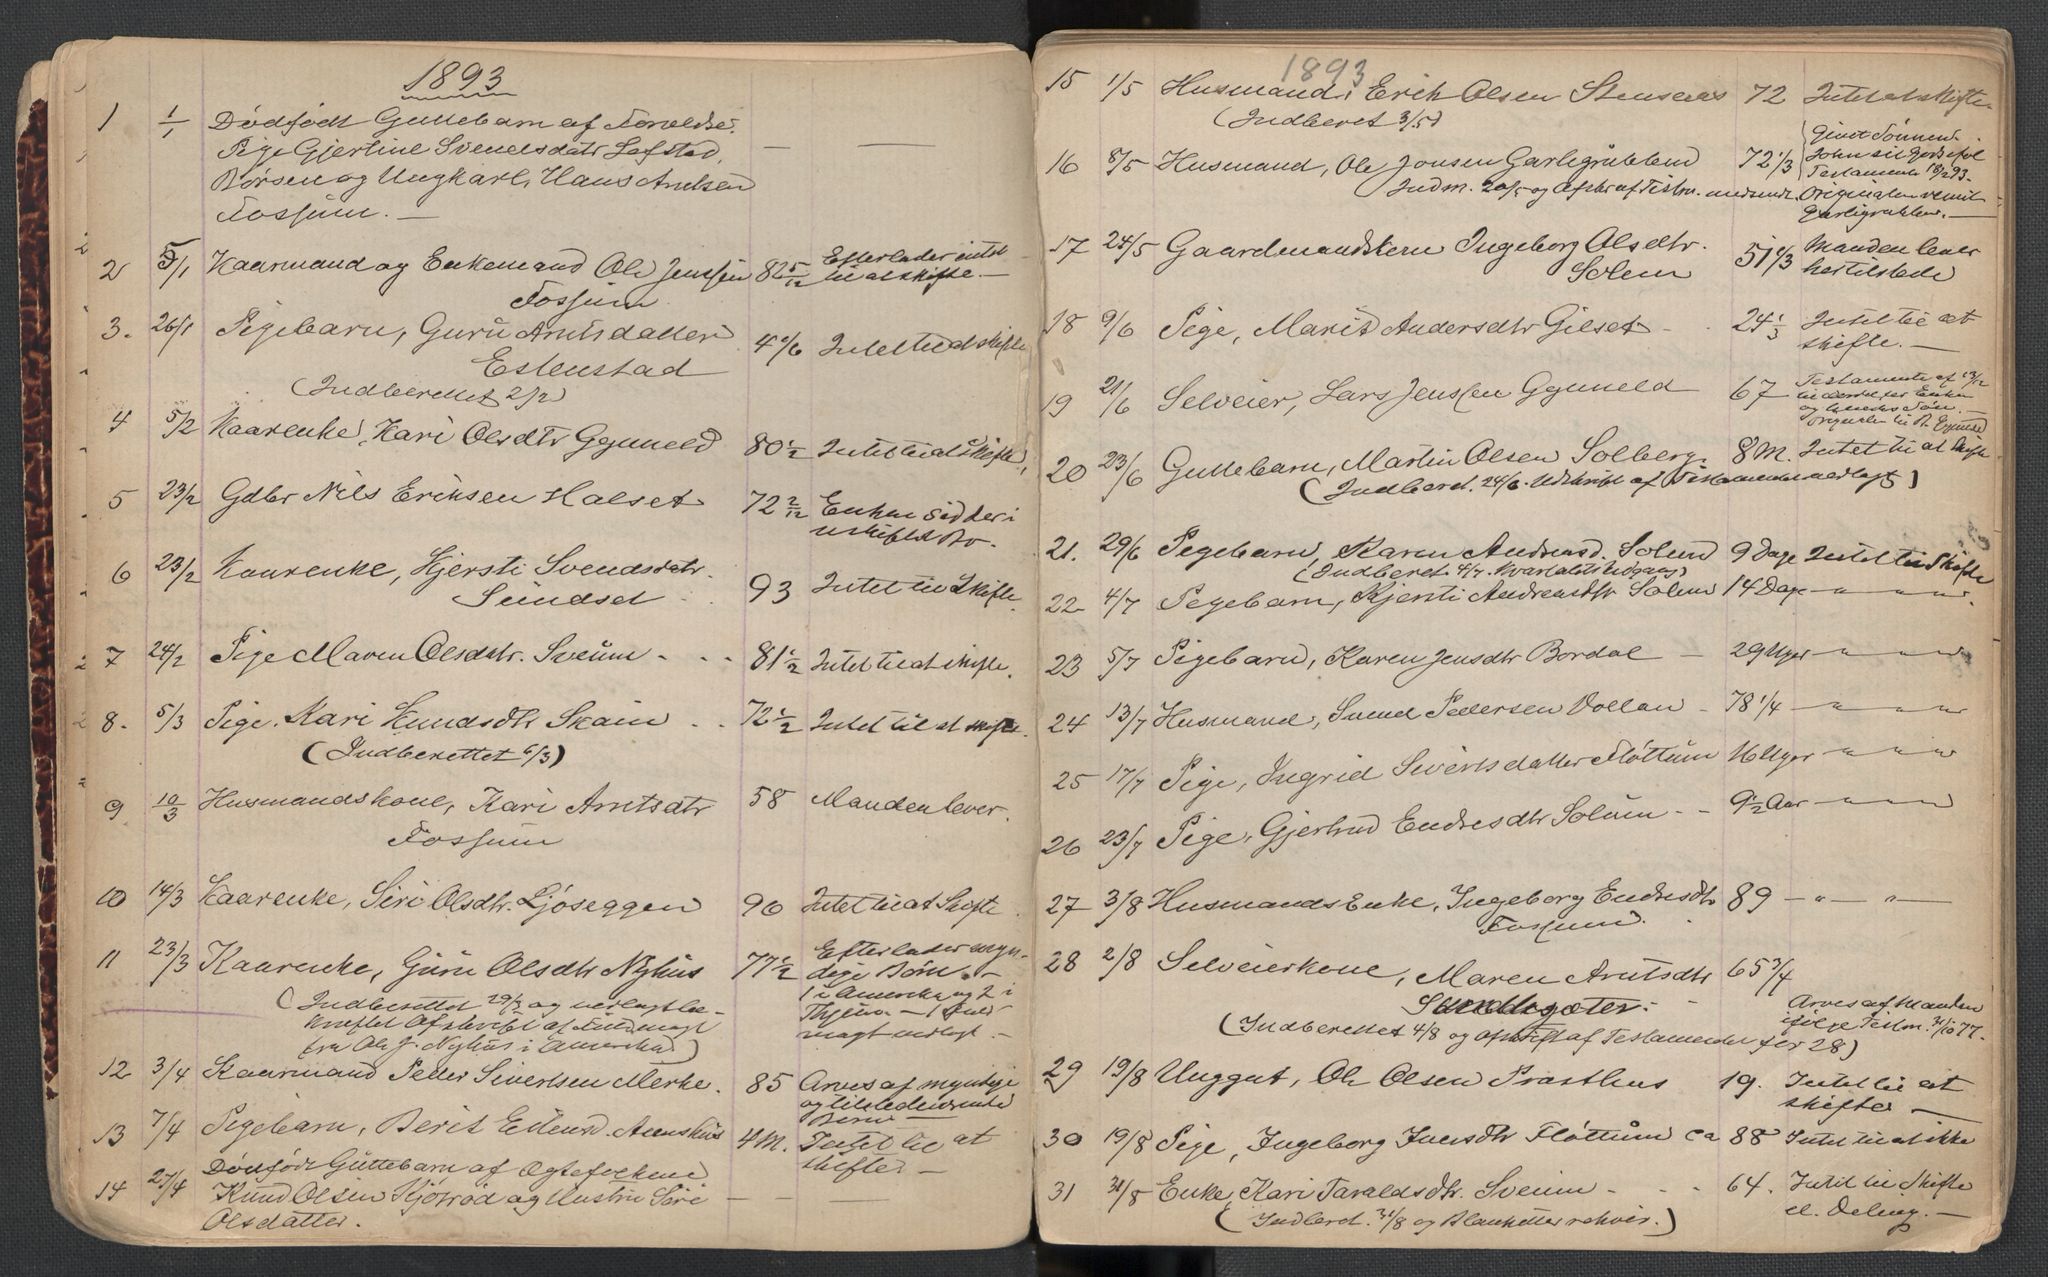 1893
1 1/1 Dødfødt Guttebarn af Forældre:
Pige Gjertine Svendsdatr Løfstad,
Børsen og Ungkarl, Hans Arntsen
Fossum. —
2 5/1 Kaarmand og Enkemand Ole Jenssen 82 5/12 Efterlader intet
Fossum til at skifte. —
3. 26/1 Pigebarn, Guru Arntsdatter 4 Intet til at skifte
Estenstad
(Indberettet 2/2)
4 5/2 Kaarenke, Kari Olsdtr Gynneld 80 1/2 Intet til at skifte,
5 23/2 Gdbr Nils Eriksen Halset 72 2/12 Enken sidder i
uskiftet Bo.
6 23/2 Kaarenke, Kjersti Svendsdatr. 93 Intet til Skifte.
Sundset
7 24/2 Pige Maren Olsdatr. Sveum - - - 81 1/2 Intet til at skifte.
8. 5/3 Pige. Kari Knudsdtr Skain - - 72 1/2 Intet til at skifte.
(Indberettet 6/3)
9 10/3 Husmandskone, Kari Arntsdtr 58 Manden lever.
Fossum
10 14/3 Kaarenke, Siri Olsdtr. Ljøseggen 96 Intet til at Skifte
11 23/3 Kaarenke, Guru Olsdtr Nyhus 77 1/2 Efterlader myn-
dige Børn. —
(Indberettet 29/3 og vedlagt be- 1 i Amerika og 2 i
kræftet Afskrift af Fuldmagt Thjem. — 1 Fuld-
fra Ole J. Nyhus i Amerika) magt vedlagt. —
12 3/4 Kaarmand Peder Sivertsen Merke. 85 Arves af myndige
og tilstedeværende
Børn
13 7/4 Pigebarn, Berit Estensd. Aunshus 4 M. Intet til at
skifte. —
14 27/4 Dødfødt Guttebarn af Ægtefolkene
Knud Olsen Kjøsrød og Hustru Siri — —
Olsdatter.
1893
15 1/5 Husmand, Erik Olsen Stenseras 72 Intet at skifte
(Indberet 3/5)
16 8/5 Husmand, Ole Jonsen Garligrubben 72 1/3 Givet Sønnen
John sit Gods iføl
Testamente 18/2 93.
Indm. 20/5 og Afskr af Testm. medsendt. Originalen remit
Garligrubben. —
17 24/5 Gaardmandskern Ingeborg Olsdtr. 51 Manden lever
Solem hertilstede
18 9/6 Pige, Marit Andersdtr Gilset - - 24 1/3 Intet til at
skifte. —
19 21/6 Selveier, Lars Jenssen Gynneld 67 Testamente af 13/12
20 23/6 Guttebarn, Martin Olsen Solberg. 8 M. Intet til at Skifte
(Indberet. 24/6. Udskrift af Testamentet vedlagt)
21. 29/6 Pigebarn, Karen Andreasd. Solem 9 Dage Intet til Skifte
(Indberet. 4/7. Kvartalets Udgang)
22 4/7 Pigebarn, Kjersti Andreasdtr Solem 14 Dage — " — " — " —
23 5/7 Pigebarn, Karen Jensdtr Bordal — 29 Uger — " — " — "
24 13/7 Husmand, Svend Pedersen Vollan - 78 1/4 — " — " — "
25 17/7 Pige, Ingrid Sivertsdatter Fløttum 16 Uger — " — " — "
26 23/7 Pige, Gjertrud Endresdtr Solum - - 9 1/2 Aar — " — " — "
27 3/8 Husmands Enke, Ingeborg Endresdtr 89 — " — " —
Fossum.
28 2/8 Selveierkone, Maren Arntsdtr 65 3/4
Sundsgæter. Arves af Manden
ifølge Testm. 31/10 77.
(Indberettet 4/8 og Afskrift af Testamentet for 28)
29 19/8 Unggut, Ole Olsen Præsthus 19. Intet til at
skifte —
30 19/8 Pige, Ingeborg Iversdtr Fløttum ca 88 Intet til at skifte
31 31/8 Enke, Kari Taraldsdtr. Sveum - - - 64. Intet til Skifte
el. Deling. —
(Indberet. 31/8 og Blanketter rekvir.)